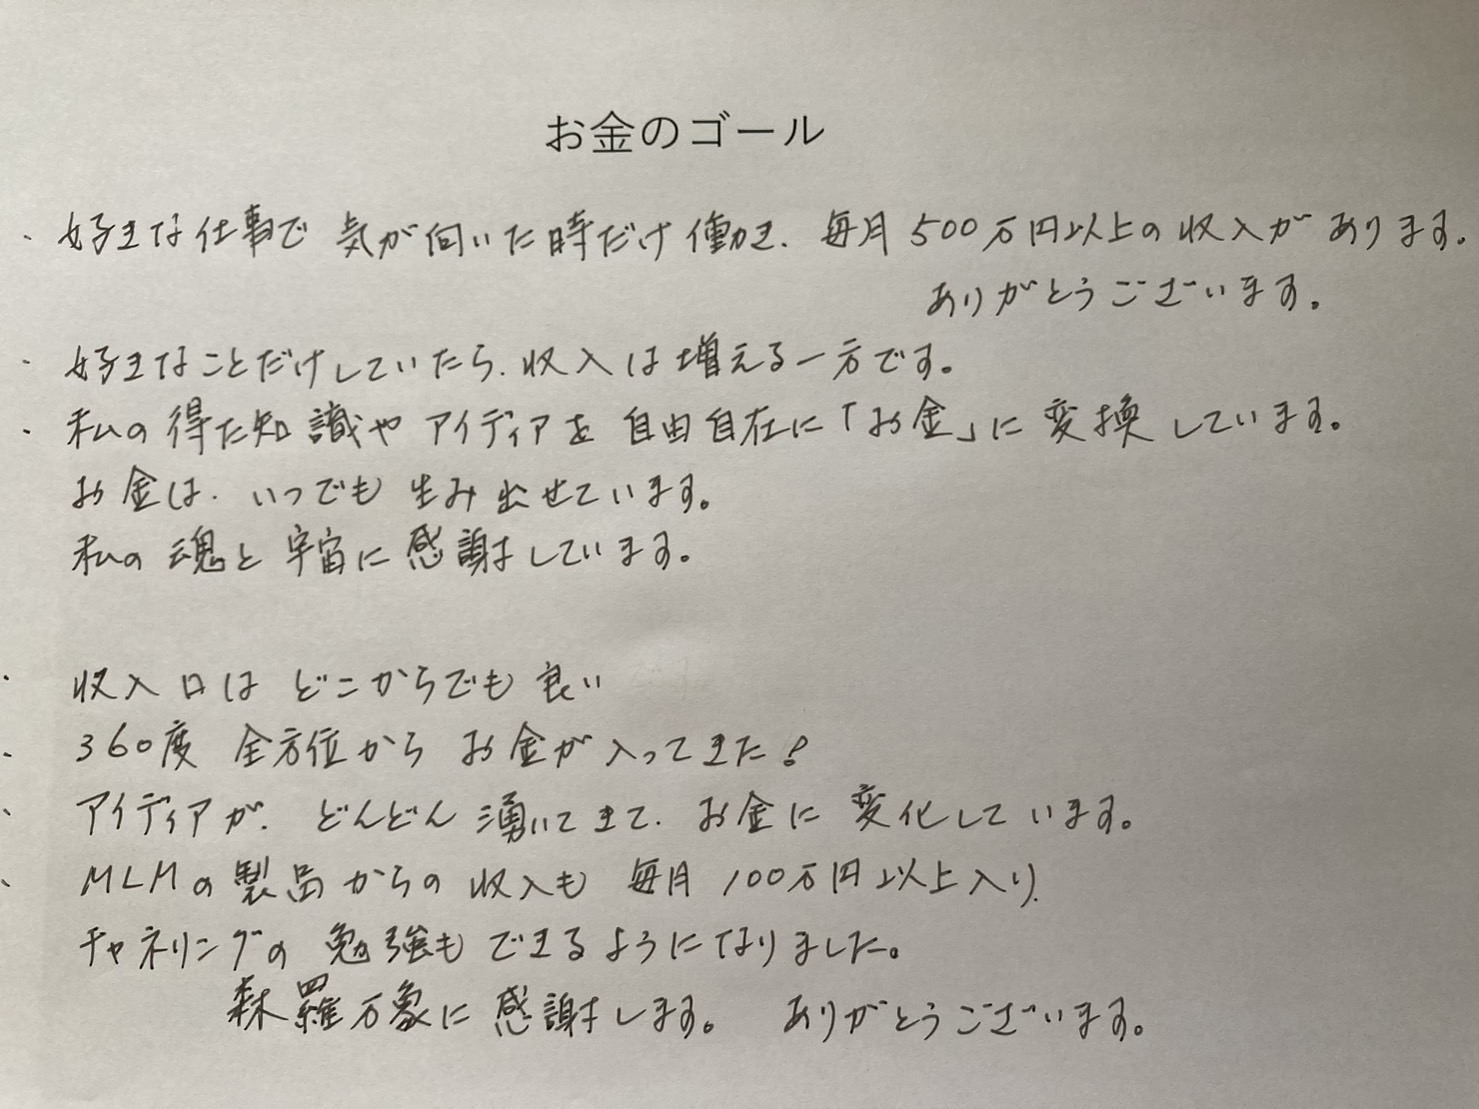 お金のゴール
・好きな仕事で 気が向いた時だけ働き、毎月500万円以上の収入があります。
ありがとうございます。
・好きなことだけしていたら、収入は増える一方です。
・私の得た知識やアイディアを自由自在に「お金」に変換しています。
お金は、いつでも生み出せています。
私の魂と宇宙に感謝しています。
・収入口はどこからでも良い
・360度 全方位からお金が入ってきた!
・アイディアが、どんどん湧いてきて、お金に変化しています。
・MLMの製品からの収入も 毎月100万円以上入り、
チャネリングの勉強もできるようになりました。
森羅万象に感謝します。 ありがとうございます。